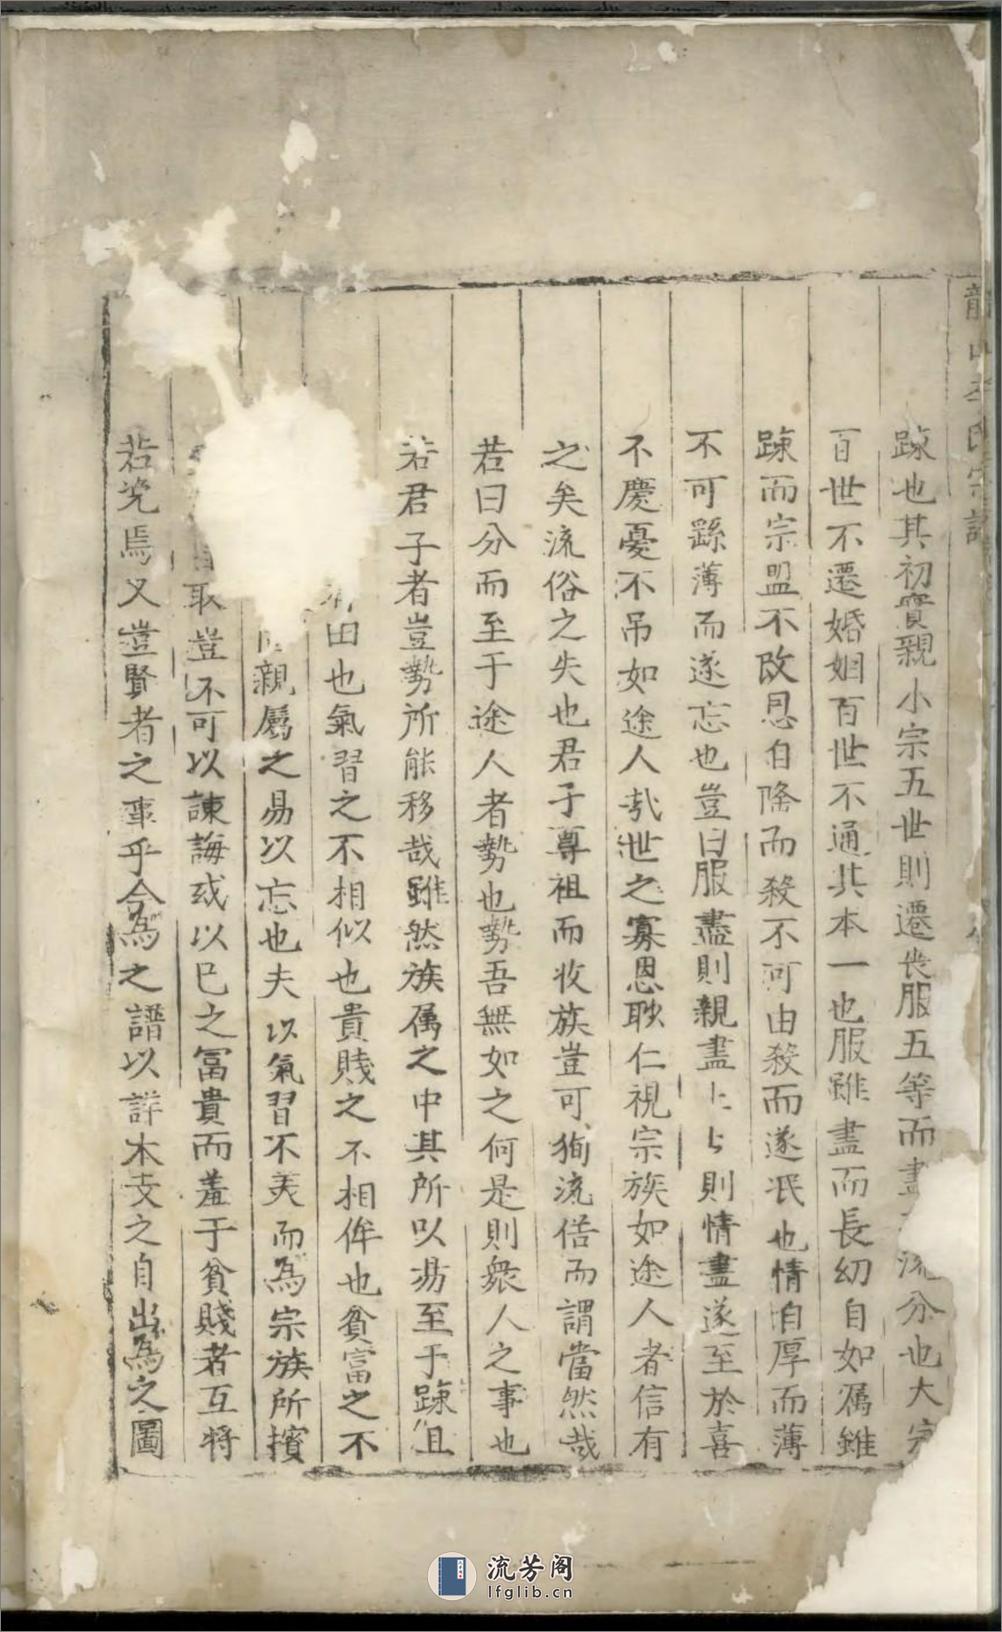 踈也其初實親小宗五世則遷丧服五等而盡流分也大宗
百世不遷婚姻百世不通其本一也服雖盡而長幼自如属雖
踈而宗盟不改恩自降而殺不可由殺而遂泯也情自厚而薄
不可繇薄而遂忘也豈曰服盡則親盡〻〻則情盡遂至於喜
不慶憂不吊如途人哉世之寡恩耿仁視宗族如途人者信有
之矣流俗之失也君子尊祖而收族豈可狥流俗而謂當然哉
若曰分而至于途人者勢也勢吾無如之何是則衆人之事也
若君子者豈勢所能移哉雖然族属之中其所以易至于踈且
由也氣習之不相似也貴賤之不相侔也貧富之不
親屬之易以忘也夫以氣習不美而為宗族所擯
取豈不可以諫誨或以已之冨貴而羞于貧賤者互将
若凂焉又豈賢者之事乎今為之譜以詳本支之自出為之圖
流芳阁
lfglib.cn